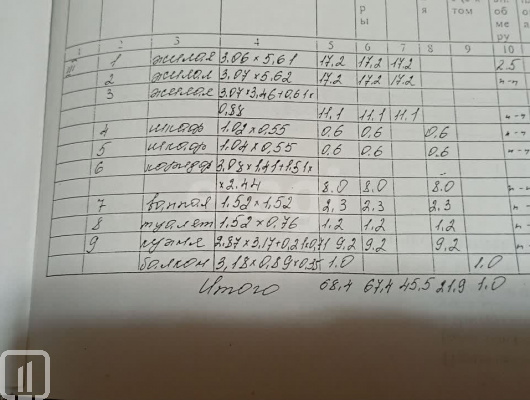 р
ы
я
том
об
ме
ру
1 2 3 4 5 6 7 8 9 10
1 жилая 3.06×5.61 17.2 17.2 17.2 2.5
2 жилая 3.07×5.62 17.2 17.2 17.2 "-"
3 жилая 3.07×3.46+0.61×
0.88 11.1 11.1 11.1 "-"
4 шкаф 1.02×0.55 0.6 0.6 0.6 "-"
5 шкаф 1.04×0.55 0.6 0.6 0.6 "-"
6 коридор 3.08×1.41+1.51×
×2.44 8.0 8.0 8.0
7 ванная 1.52×1.52 2,3 2.3 2.3
8 туалет 1.52×0.76 1.2 1.2 1.2
9 кухня 2.87×3.17+0.21×0.71 9.2 9.2 9.2
балкон 3,18×0.89×0.35 1.0 1.0
Итого 68,4 67,4 45,5 21,9 1.0